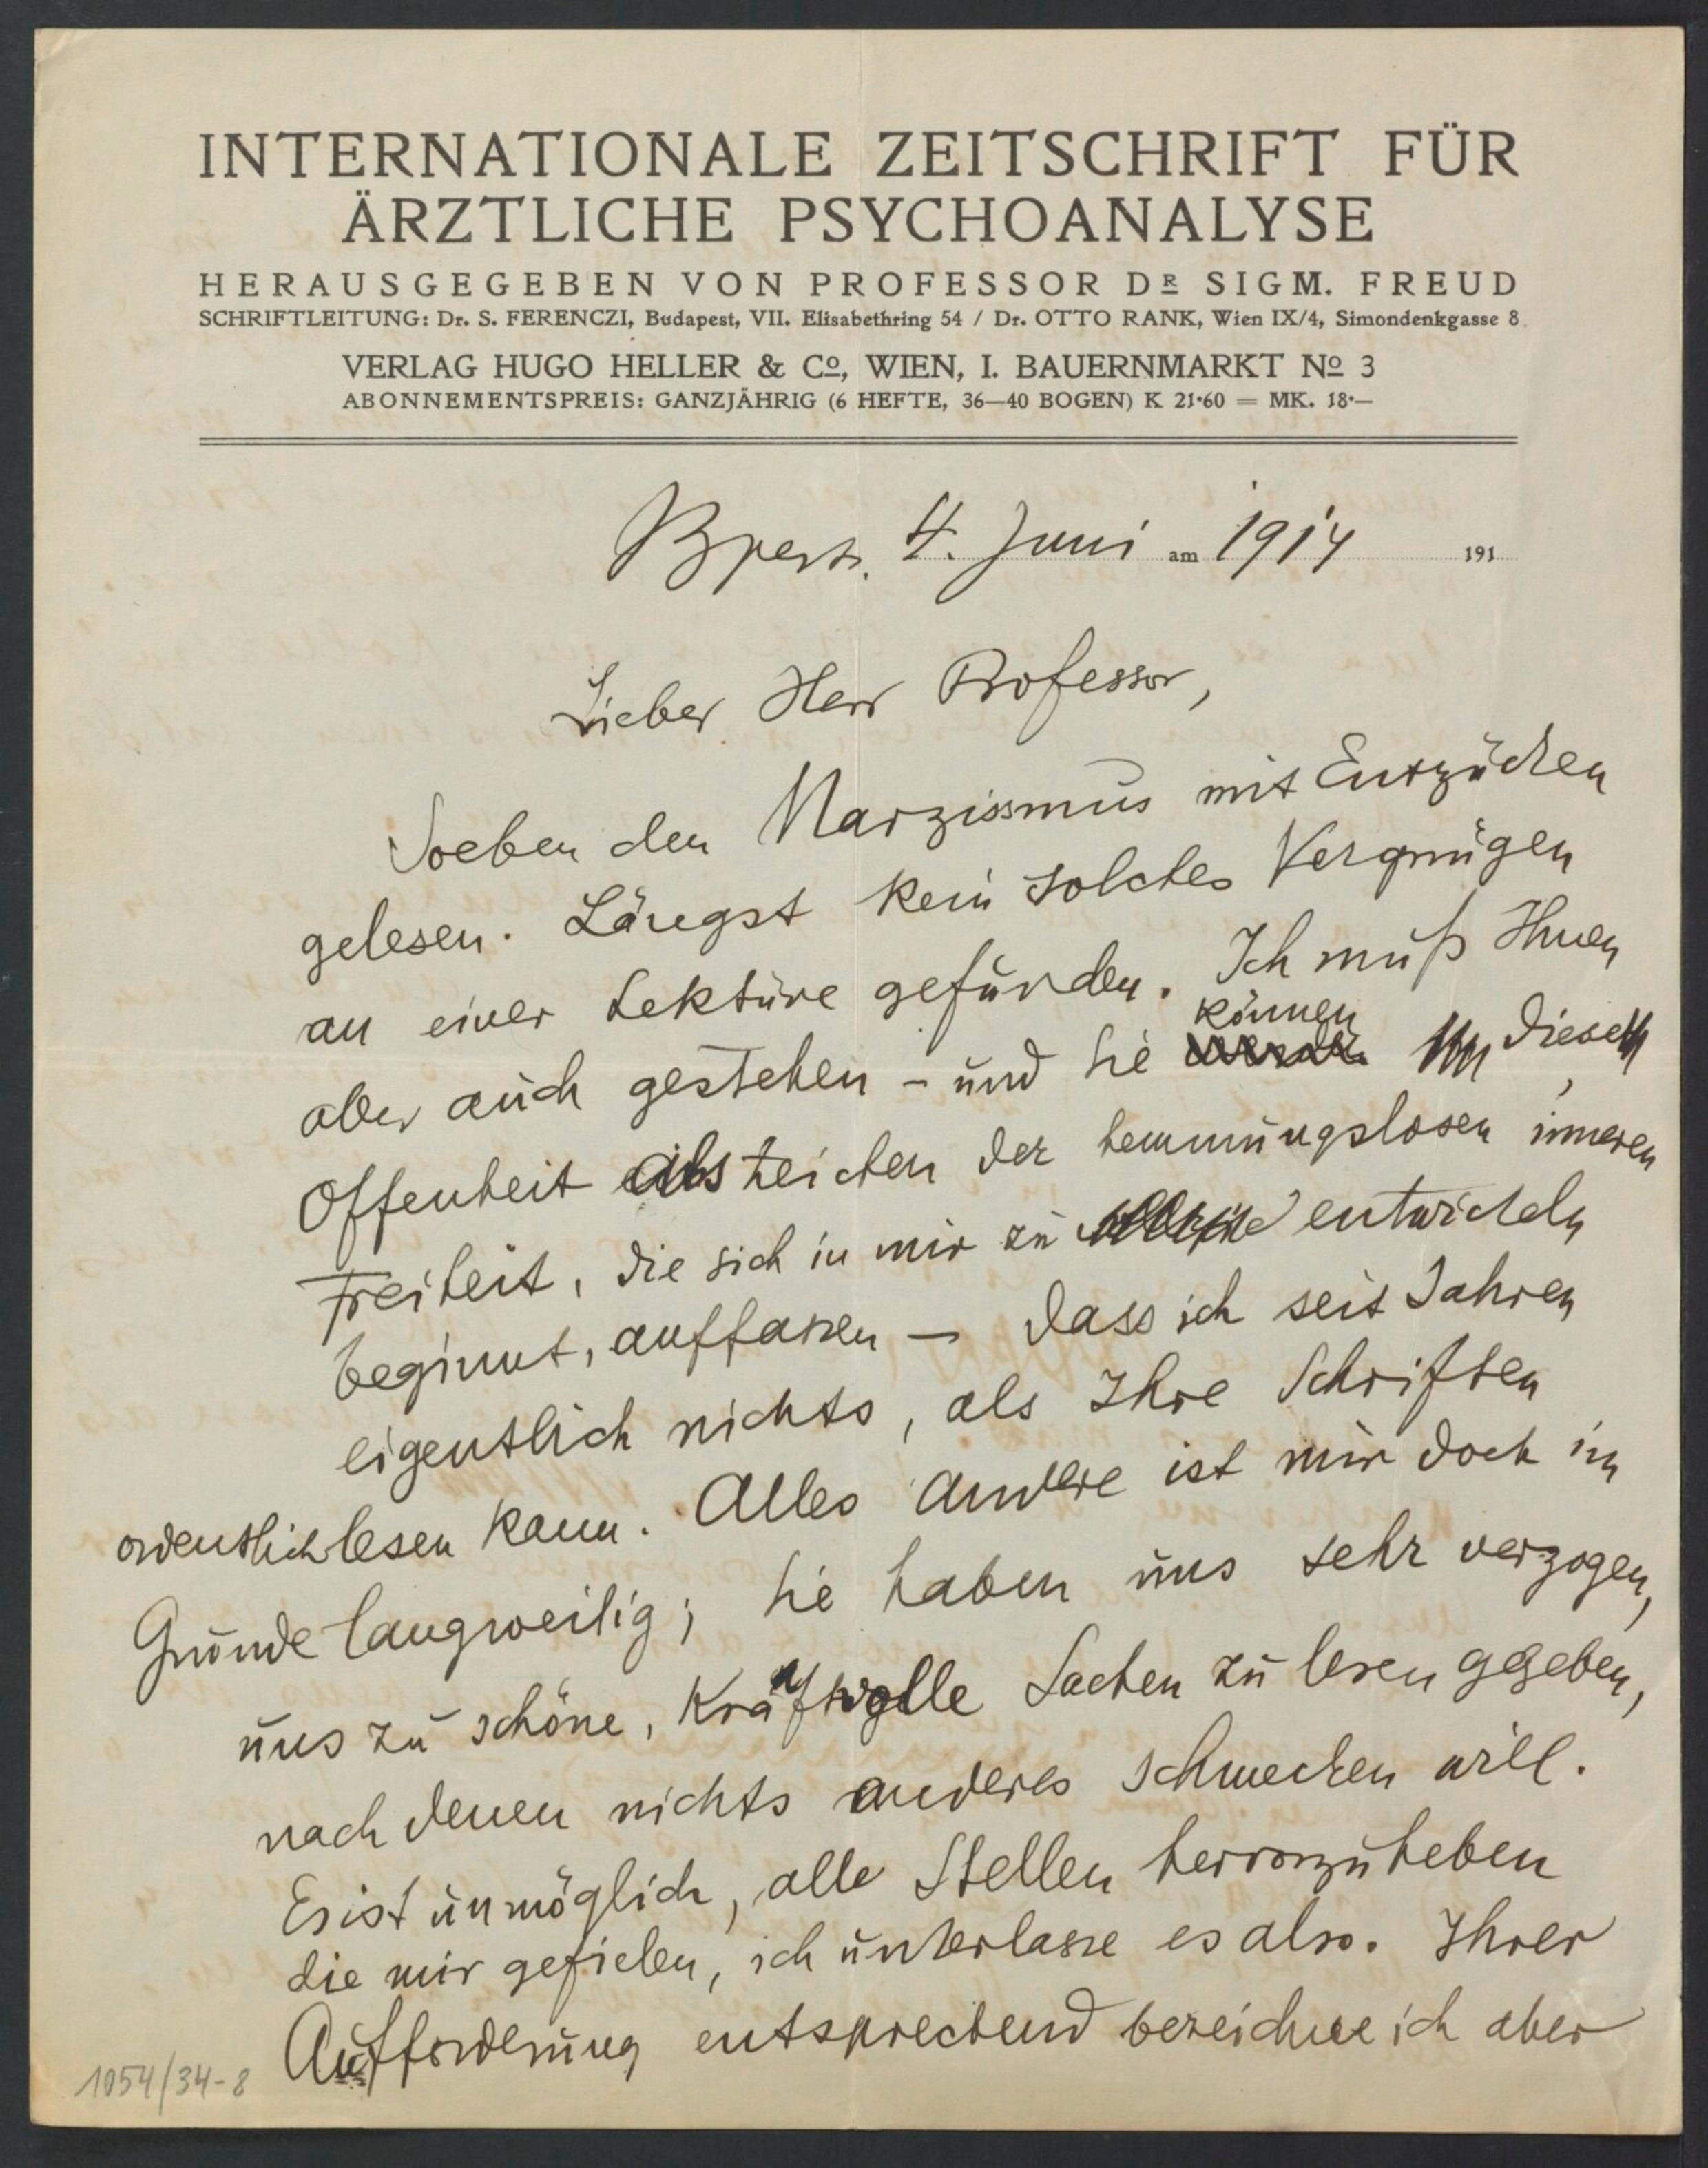 INTERNATIONALE ZEITSCHRIFT FÜR
ÄRZTLICHE PSYCHOANALYSE
HERAUSGEGEBEN VON PROFESSOR DR SIGM. FREUD
SCHRIFTLEITUNG: Dr. S. FERENCZI, Budapest, VII. Elisabethring 54 / Dr. OTTO RANK, Wien IX/4, Simondenkgasse 8.
VERLAG HUGO HELLER & Co, WIEN, I. BAUERNMARKT No 3
ABONNEMENTSPREIS: GANZJÄHRIG (6 HEFTE, 36—40 BOGEN) K 21·60 = MK. 18·—
Bpest. 4. Juni am 1914 191
Lieber Herr Professor,
Soeben den Narzissmus mit Entzücken
gelesen. Längst kein solches Vergnügen
an einer Lektüre gefunden. Ich muß Ihnen
aber auch gestehen – und Sie können diese
Offenheit als Zeichen der hemmungslosen inneren
Freiheit, die sich in mir zu entwickeln
beginnt, auffassen – dass ich seit Jahren
eigentlich nichts, als Ihre Schriften
ordentlich lesen kann. Alles Andere ist mir doch im
Grunde langweilig; Sie haben uns sehr verzogen,
uns zu schöne, kraftvolle Sachen zu lesen gegeben,
nach denen nichts anderes schmecken will.
Es ist unmöglich, alle Stellen hervorzuheben
die mir gefielen, ich unterlasse es also. Ihrer
Aufforderung entsprechend bezeichne ich aber
1054/34-8